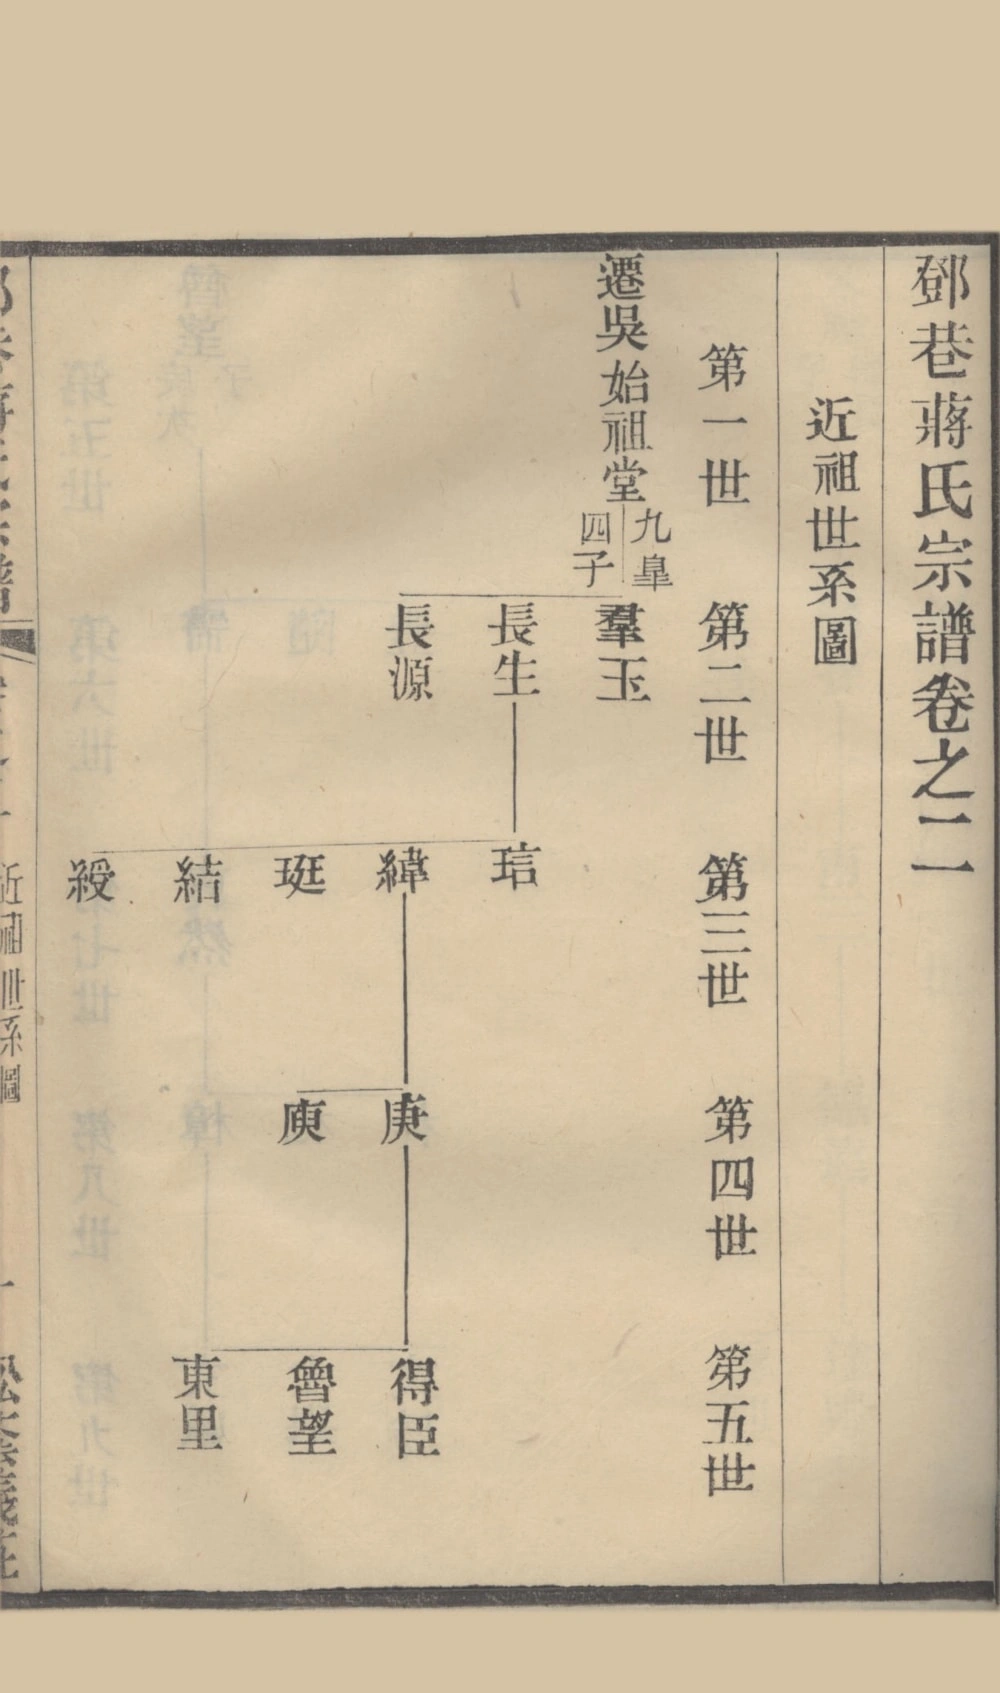 鄧巷蔣氏宗譜卷之二
近祖世系圖
第一世
第二世
第三世
第四世
第五世
遷吳始祖堂
九臯
四子
羣玉
長生
長源
琂
緯
珽
結
綬
庚
庾
得臣
魯望
東里
近祖世系圖
一